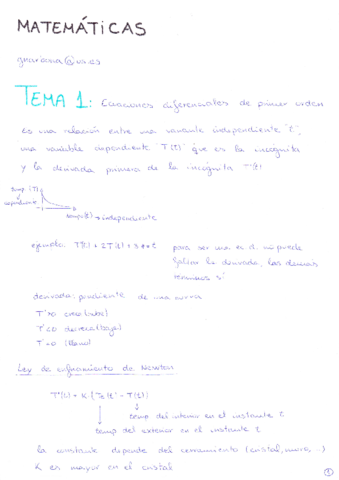 MATEMÁTICAS
TEMA 1: Ecuaciones diferenciales de primer orden
es una relación entre una variable independiente "t",
una variable dependiente "T(t)" que es la incógnita
y la derivada primera de la incógnita T'(t)
temp (T)
dependiente
tiempo(t) → independiente
ejemplo: para ser una e.d. no puede
faltar la derivada, los demás
términos sí
derivada: pendiente de una curva
T'>0 crece (sube)
T'<0 decrece (baja)
T'=0 (llano)
Ley de enfriamiento de Newton
temp del interior en el instante t
temp del exterior en el instante t
la constante depende del cerramiento (cristal, muro...)
K es mayor en el cristal
1